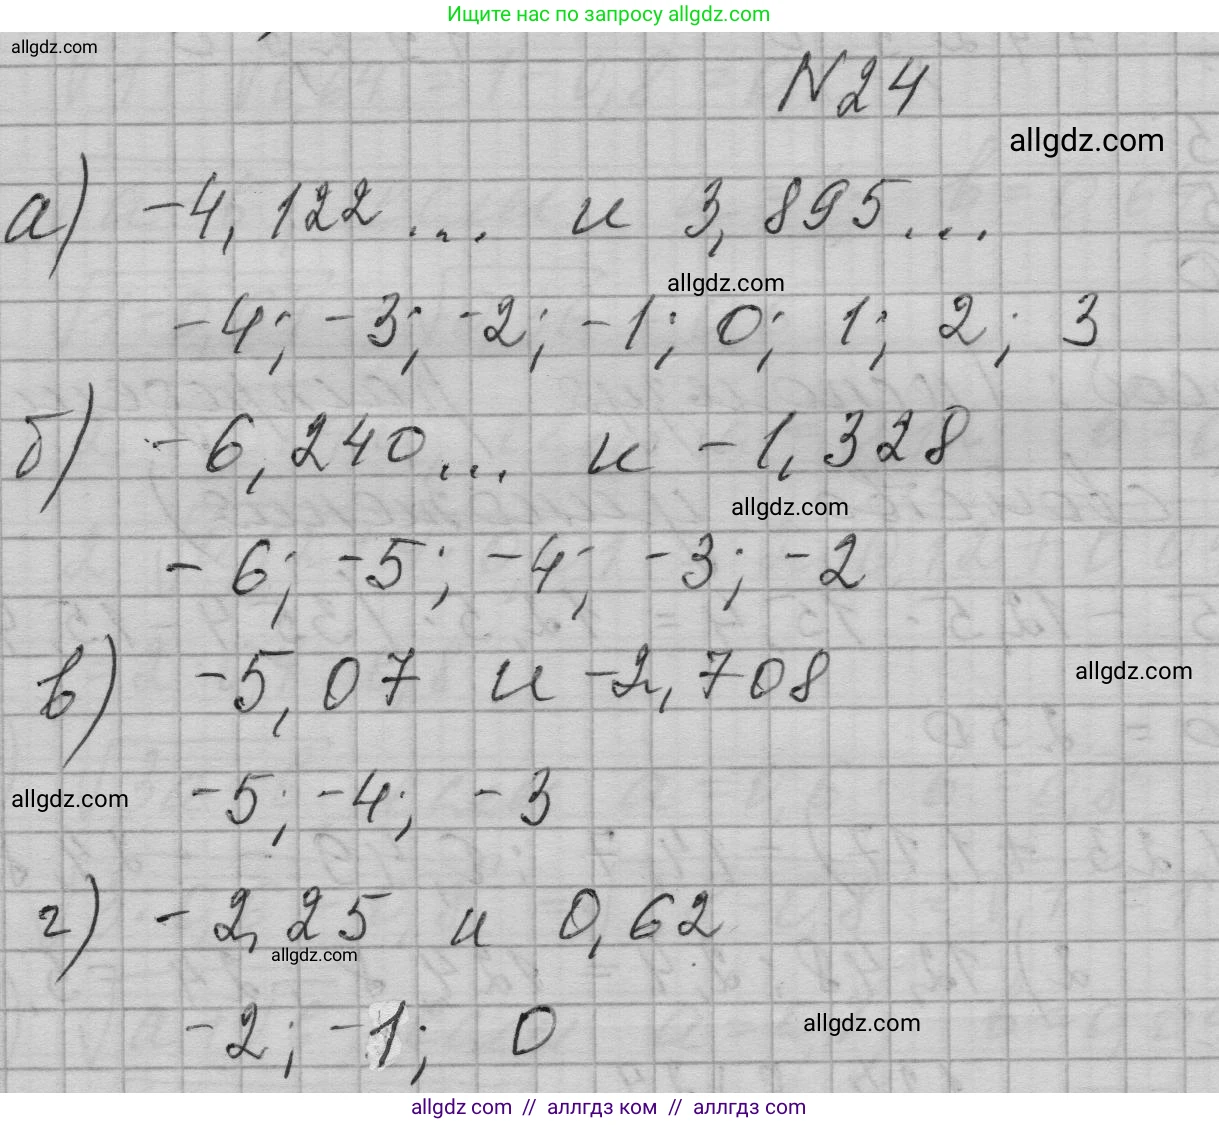 Ищите нас по запросу allgdz.com
allgdz.com
N24
allgdz.com
а) -4,122... и 3,895...
allgdz.com
-4; -3; -2; -1; 0; 1; 2; 3
б) -6,240... и -1,328
allgdz.com
-6; -5; -4; -3; -2
в) -5,07 и -2,708
allgdz.com
allgdz.com
-5; -4; -3
г) -2,25 и 0,62
allgdz.com
-2; -1; 0
allgdz.com
allgdz com // аллгдз ком // allgdz.com